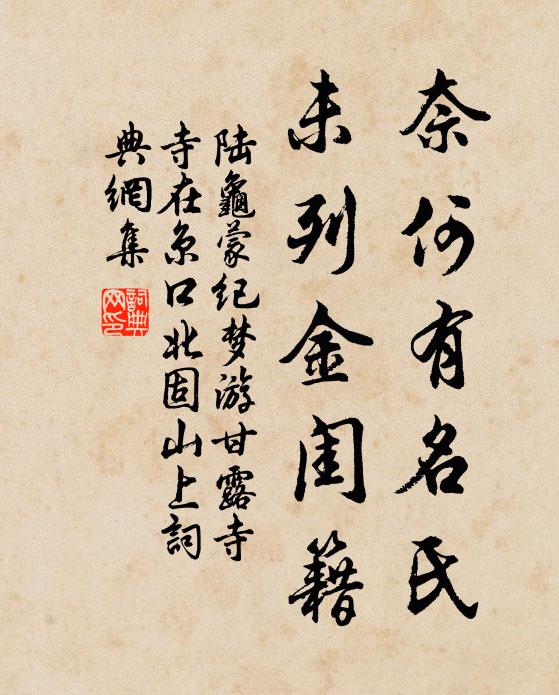 奈何有名氏
未列金闺籍
陆龜蒙纪梦游甘露寺
寺在京口北固山上詞
典網集
詞典网印